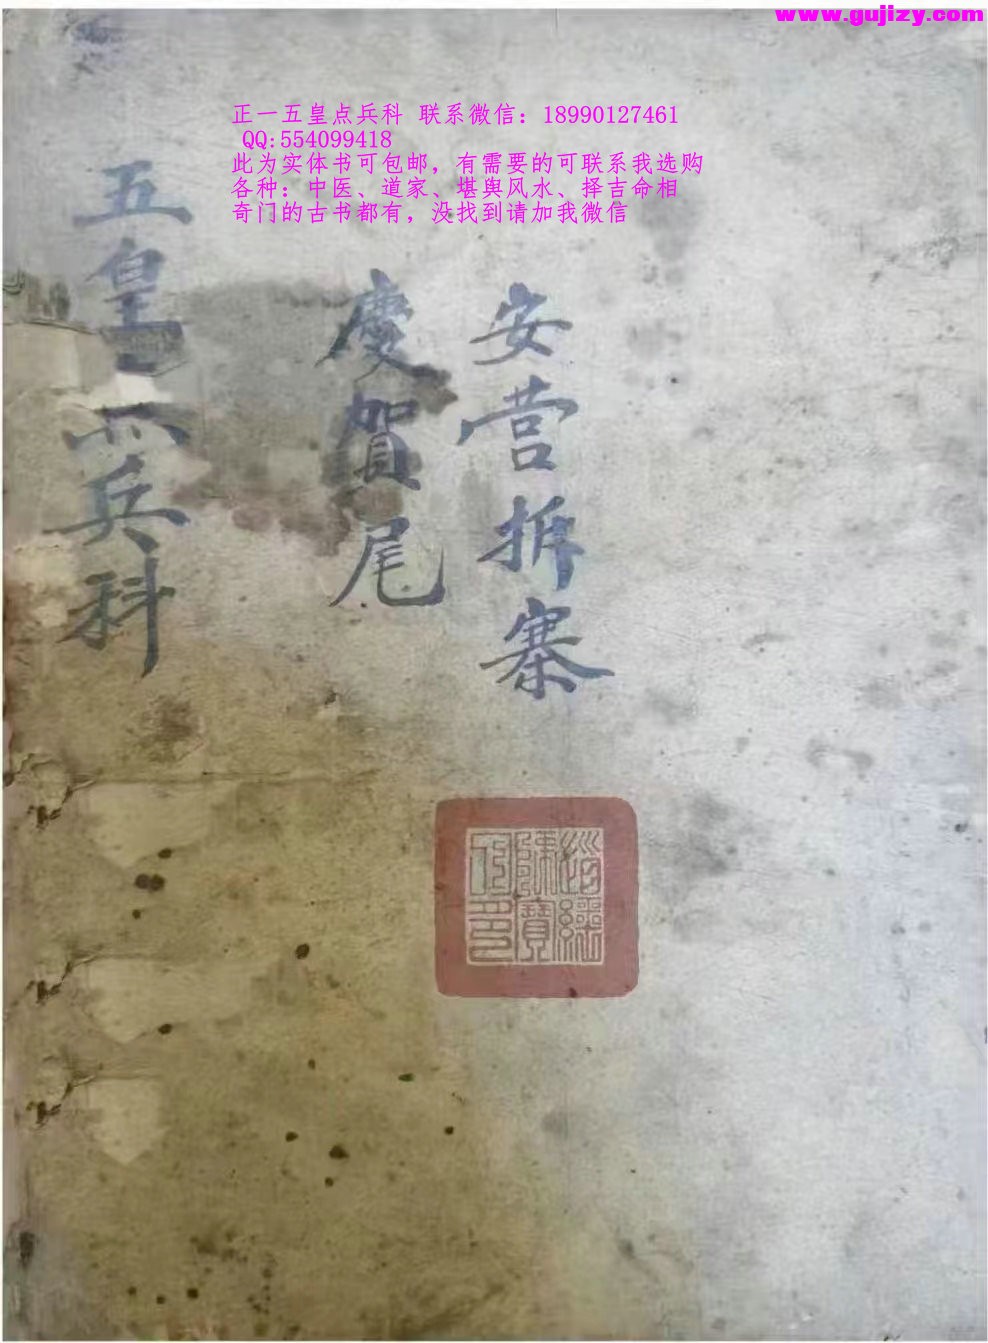 www.gujizy.com
正一五皇点兵科 联系微信：18990127461
QQ:554099418
此为实体书可包邮，有需要的可联系我选购
各种：中医、道家、堪舆风水、择吉命相
奇门的古书都有，没找到请加我微信
安营拆寨
慶賀尾
五皇兵科
道經師寶印